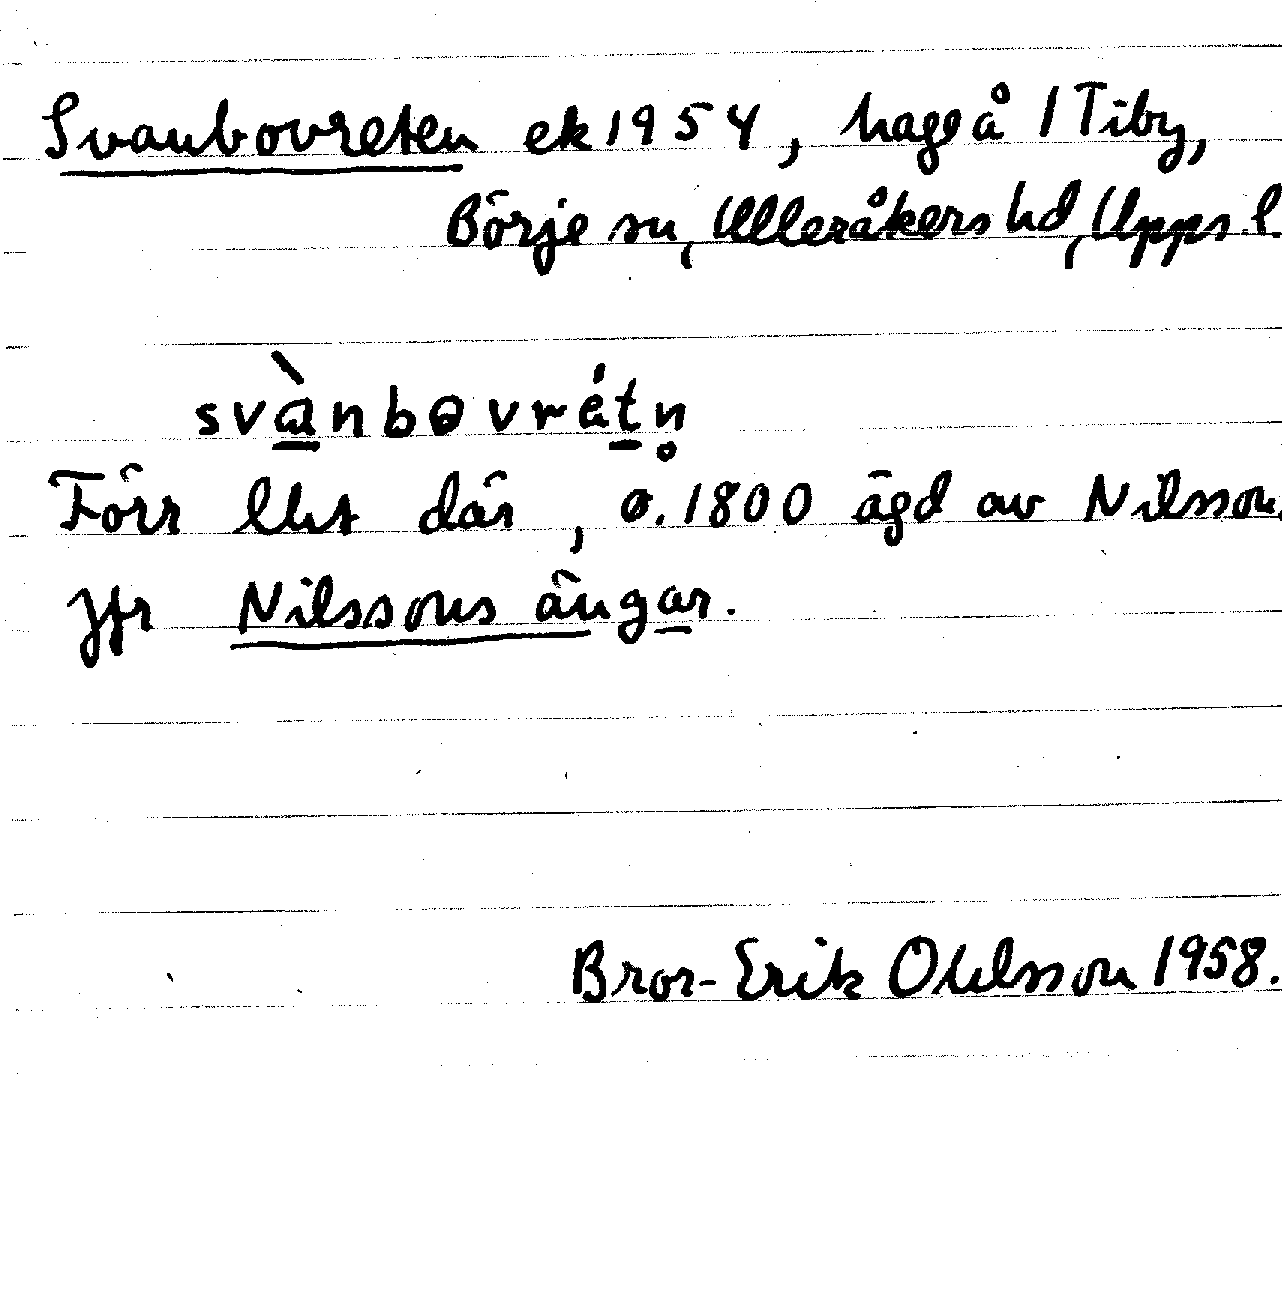 Svanbovreten ek 1954, hage å 1 Tiby,
Börje sn, Ulleråkers hd, Upps l.
svànbovrétn̥
Förr lht där, o. 1800 ägd av Nilsson.
Jfr Nilssons ängar.
Bror-Erik Ohlsson 1958.